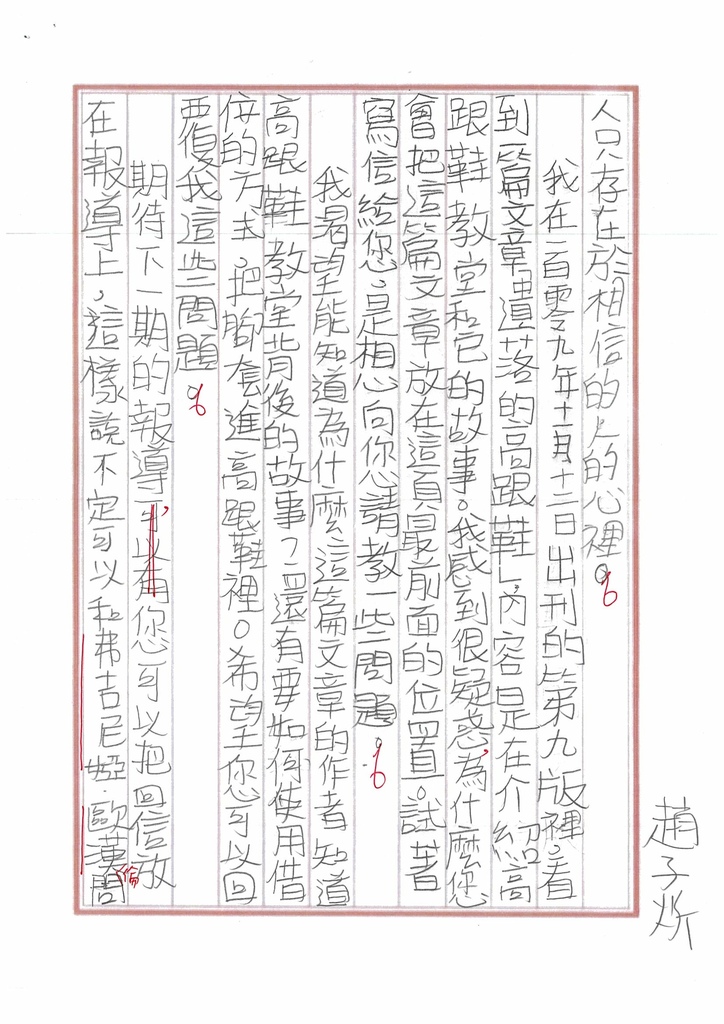 趙子炘
人只存在於相信的人的心裡。
我在一百零九年十一月十二日出刊的第九版裡,看
到一篇文章「遺落的高跟鞋」,內容是在介紹高
跟鞋教堂和它的故事。我感到很疑惑,為什麼您
會把這篇文章放在這頁最前面的位置。試著
寫信給您,是想向您請教一些問題。
我希望能知道為什麼這篇文章的作者知道
高跟鞋教堂背後的故事?還有要如何使用借
位的方式,把腳套進高跟鞋裡。希望您可以回
覆我這些問題。
期待下一期的報導,您可以把回信放
在報導上,這樣說不定可以和弗吉尼婭·歐漢倫